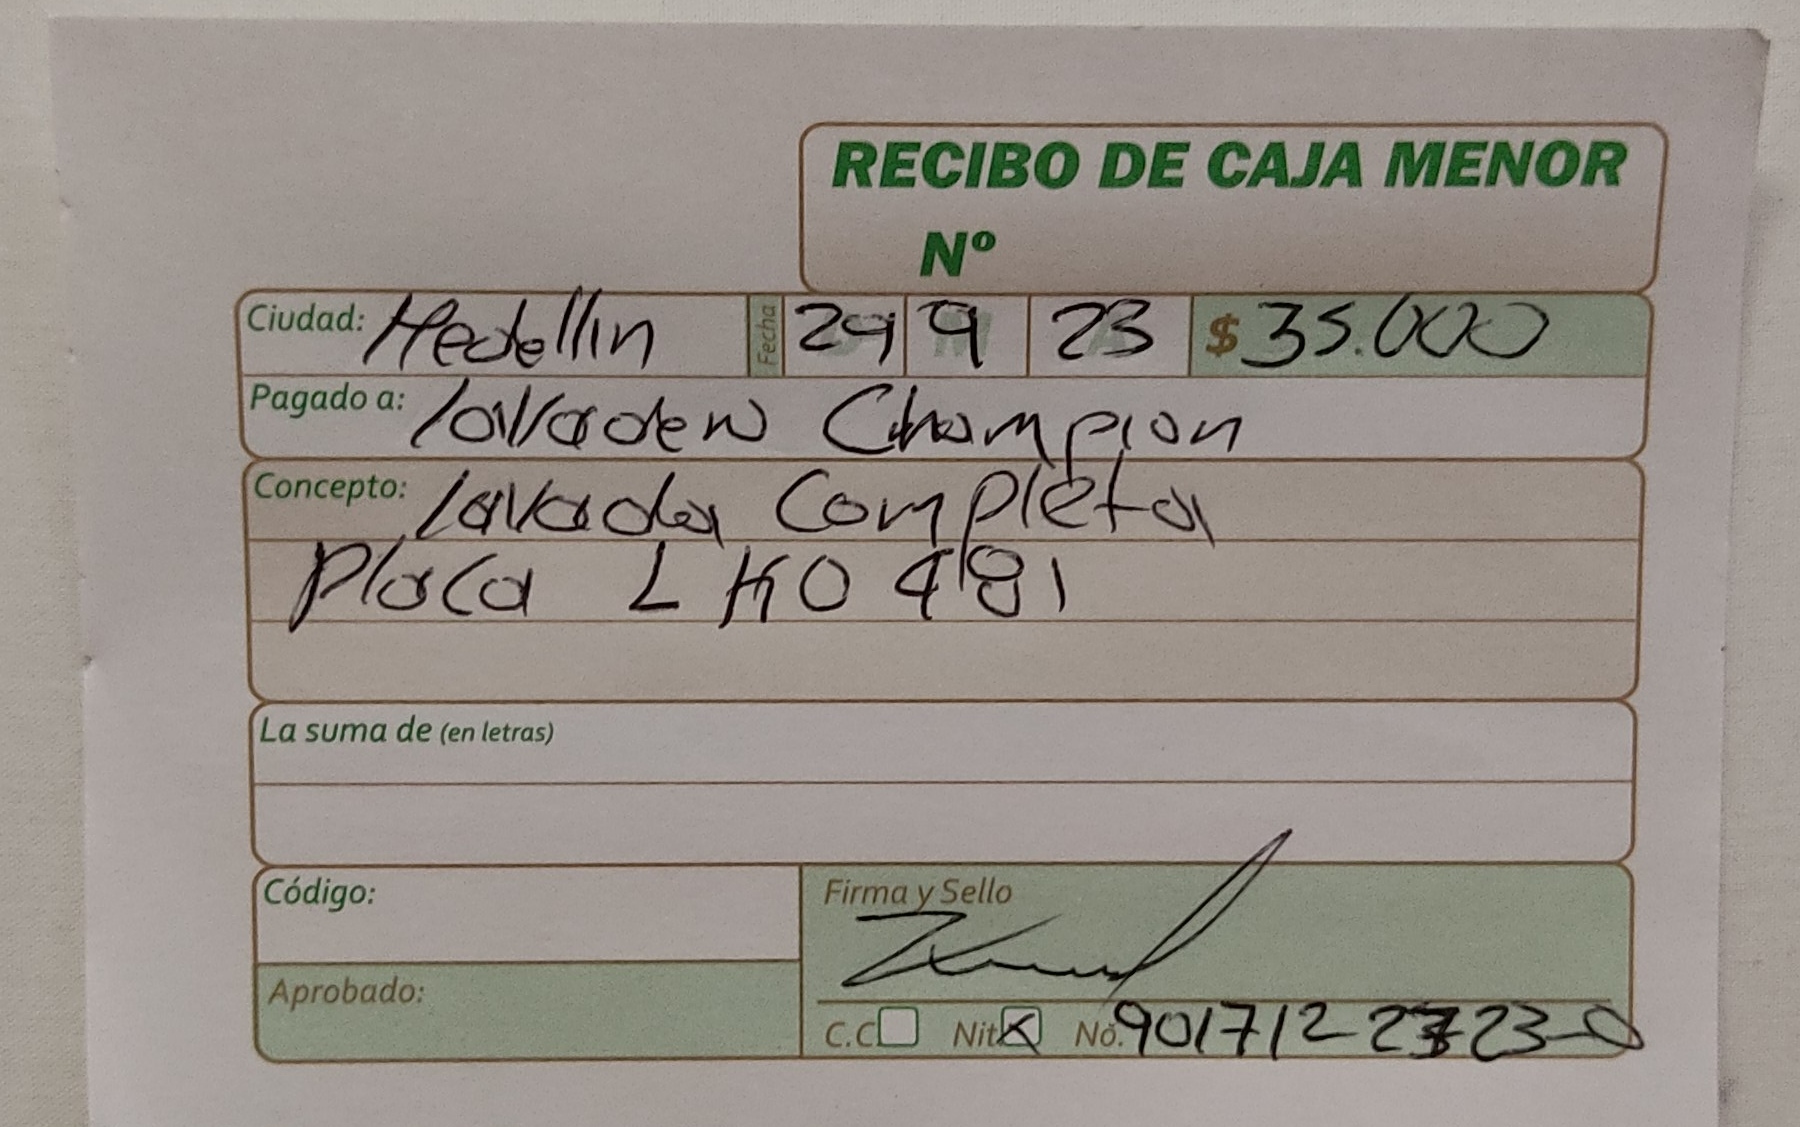 RECIBO DE CAJA MENOR
Nº
Ciudad: Medellin Fecha 29 9 23 $ 35.000
Pagado a: lavadero Champion
Concepto: lavada Completa
Placa LKO 481
La suma de (en letras)
Código: Firma y Sello
Aprobado:
C.C Nit X No.